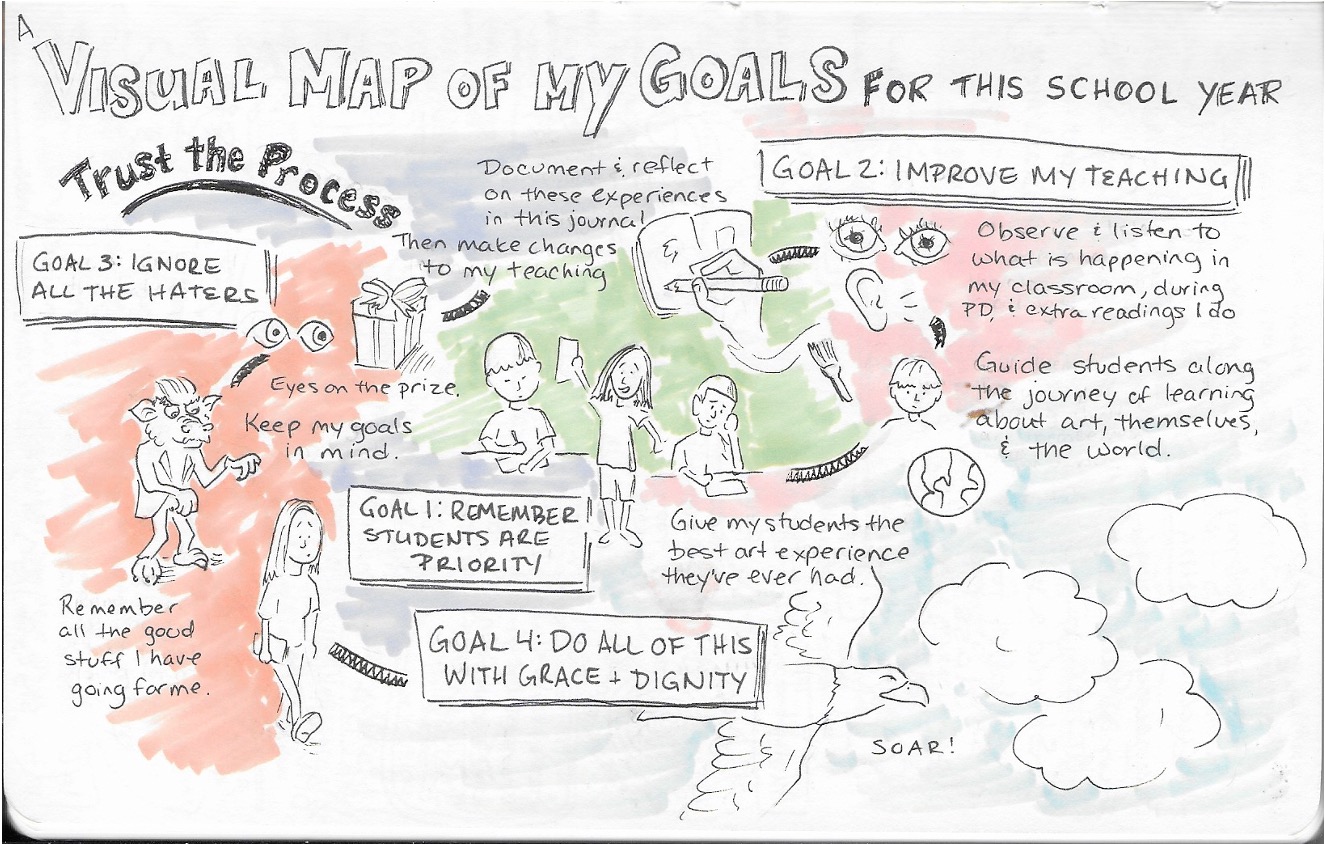 A VISUAL MAP OF MY GOALS FOR THIS SCHOOL YEAR
Trust the Process
Document & reflect
on these experiences
in this journal
Then make changes
to my teaching
GOAL 2: IMPROVE MY TEACHING
Observe & listen to
what is happening in
my classroom, during
PD, & extra readings I do
Guide students along
the journey of learning
about art, themselves,
& the world.
GOAL 3: IGNORE
ALL THE HATERS
Eyes on the prize.
Keep my goals
in mind.
GOAL 1: REMEMBER
STUDENTS ARE
PRIORITY
Give my students the
best art experience
they've ever had.
Remember
all the good
stuff I have
going for me.
GOAL 4: DO ALL OF THIS
WITH GRACE + DIGNITY
SOAR!